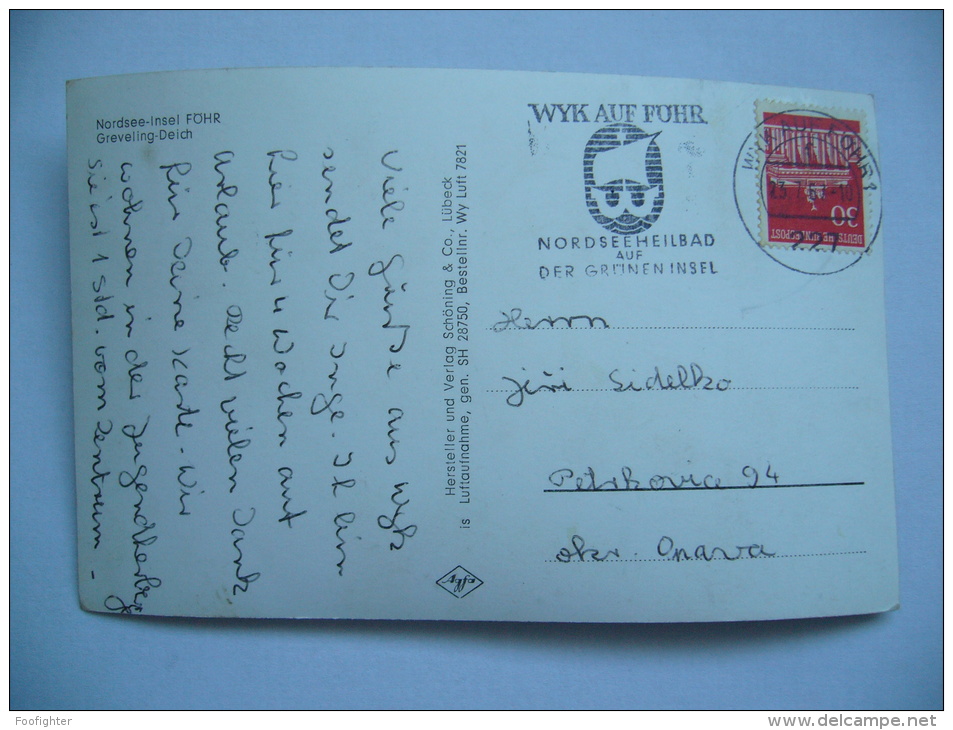 Nordsee-Insel FÖHR
Greveling-Deich
Viele Grüße aus Wyk
sendet Dir Inge. Ich bin
hier für 4 Wochen auf
Urlaub. Recht vielen Dank
für Deine Karte. Wir
wohnen in der Jugendherberge
Sie ist 1 Std. vom Zentrum -
Hersteller und Verlag Schöning & Co., Lübeck
is Luftaufnahme, gen. SH 28750, Bestellnr. Wy Luft 7821
WYK AUF FÖHR
NORDSEEHEILBAD
AUF
DER GRÜNEN INSEL
30
DEUTSCHE BUNDESPOST
Herrn
Jiří Sidelko
Petrkovice 94
okr. Opava
Foofighter
www.delcampe.net